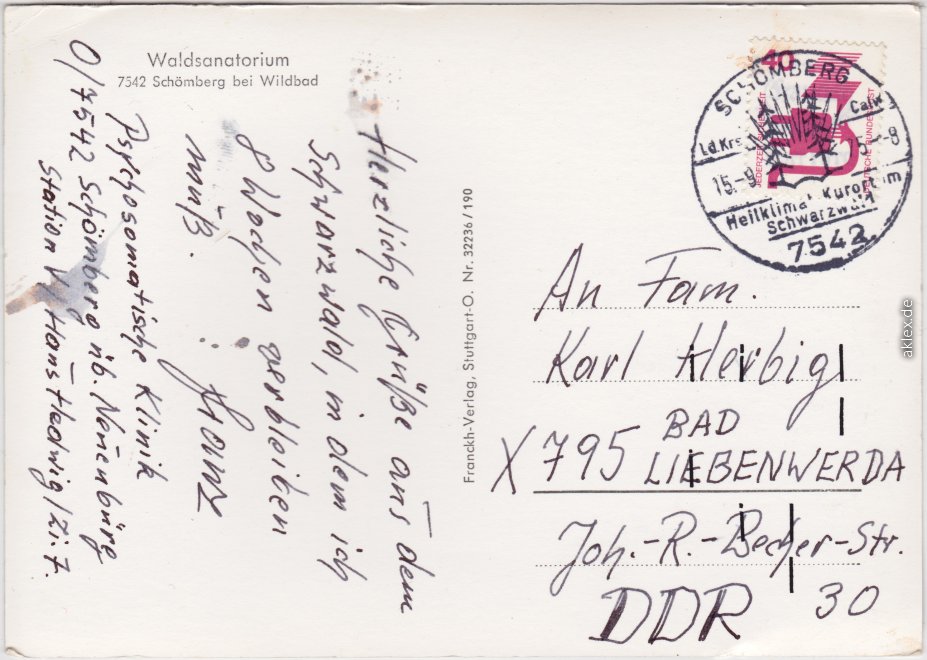 Waldsanatorium
7542 Schömberg bei Wildbad
Herzliche Grüße aus dem
Schwarzwald, in dem ich
8 Wochen verbleiben
muß.
Hans
Psychosomatische Klinik
O/7542 Schömberg üb. Neuenbürg
Station V, Haus Hedwig/Zi. 7.
Franckh-Verlag, Stuttgart-O. Nr. 32236/190
40
JEDERZEIT SICHERHEIT
DEUTSCHE BUNDESPOST
SCHÖMBERG
Ld.Krs. Calw
15.-9. -8
Heilklimat. Kurort im
Schwarzwald
7542
An Fam.
Karl Herbig
X 795 BAD
LIEBENWERDA
Joh.-R.-Becher-Str.
30
DDR
aklex.de